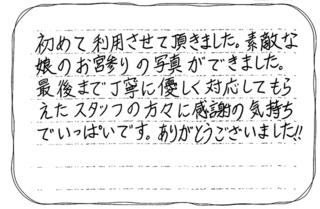 初めて利用させて頂きました。素敵な
娘のお宮参りの写真ができました。
最後まで丁寧に優しく対応してもら
えたスタッフの方々に感謝の気持ち
でいっぱいです。ありがとうございました!!